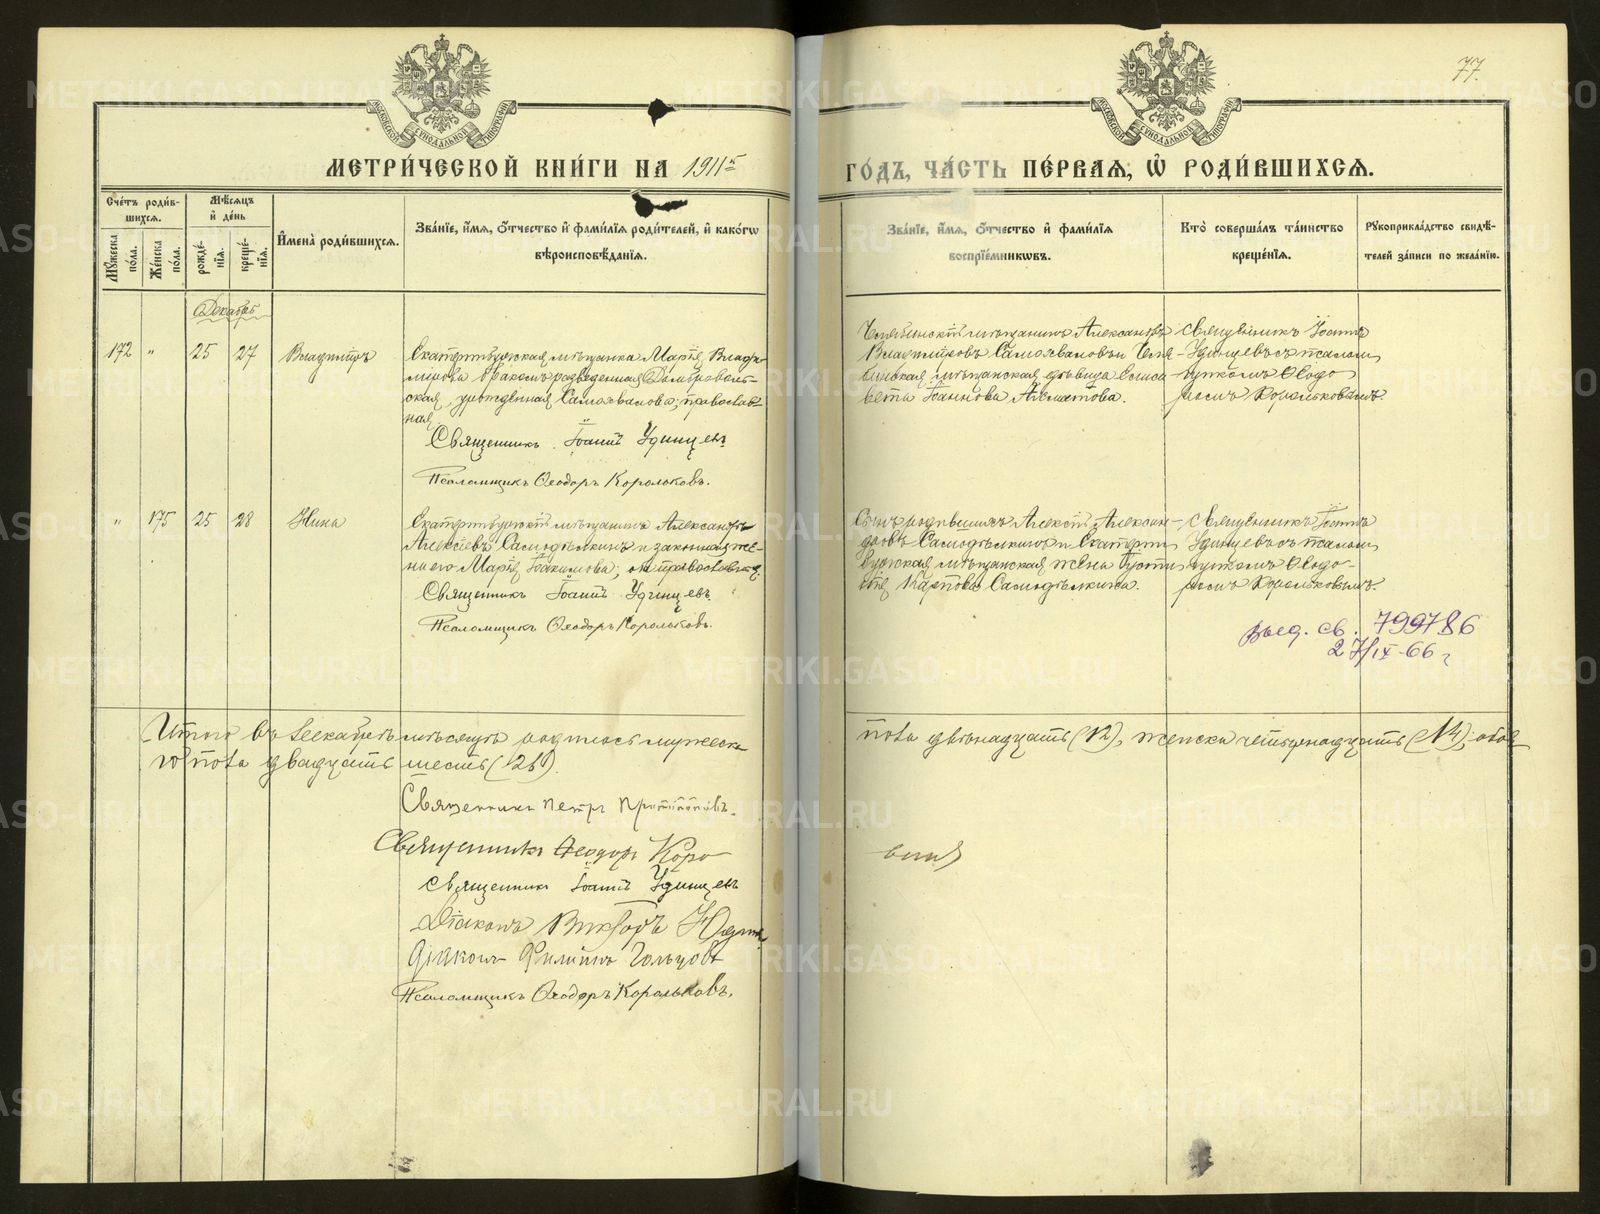 77.
МОСКОВСКОЙ СѴНОДАЛЬНОЙ ТИПОГРАФІИ
МОСКОВСКОЙ СѴНОДАЛЬНОЙ ТИПОГРАФІИ
МЕТРИ́ЧЕСКОЙ КНИ́ГИ НА 1911 ГО́ДЪ, ЧА́СТЬ ПЕ́РВАѦ, Ѽ РОДИ́ВШИХСѦ.
Сче́тъ роди́в-
шихсѧ.
Мꙋ́жеска по́ла.
Же́нска по́ла.
Мѣ́сѧцъ
и҆ де́нь
рожде́-
нїѧ.
креще́-
нїѧ.
И҆мена̀ роди́вшихсѧ.
Зва́нїе, и҆́мѧ, ѻ҆́тчество и҆ фами́лїѧ роди́телей, и҆ како́гѡ
вѣроисповѣ́данїѧ.
Зва́нїе, и҆́мѧ, ѻ҆́тчество и҆ фами́лїѧ
воспрїе́мникѡвъ.
Кто̀ соверша́лъ та́инство
креще́нїѧ.
Рꙋкоприкла́дство свидѣ́-
телей за́писи по жела́нїю.
Декабрь
172 " 25 27 Владиміръ
Екатеринбургская мѣщанка Марія Влади-
мирова бракомъ разведенная Домбровол-
ская, урожденная Самохвалова, православ-
ная
Священникъ Іоаннъ Удинцевъ
Псаломщикъ Ѳеодоръ Корольковъ.
Челябинскій мѣщанинъ Александръ
Владиміровъ Самохваловъ и Челя-
бинская мѣщанская дѣвица Елиса
вета Іоаннова Ахматова.
Священникъ Іоаннъ
Удинцевъ съ псалом
щикомъ Ѳеодо
ромъ Корольковымъ
" 175 25 28 Нина
Екатеринбургскій мѣщанинъ Александръ
Алексѣевъ Самодѣлкинъ и законная же-
на его Марія Іоакимова, оба православные.
Священникъ Іоаннъ Удинцевъ.
Псаломщикъ Ѳеодоръ Корольковъ.
Сынъ родившихъ Алексѣй Алексан-
дровъ Самодѣлкинъ и Екатерин
бургская мѣщанская жена Усти
нія Карпова Самодѣлкина.
Священникъ Іоаннъ
Удинцевъ съ псалом
щикомъ Ѳеодо-
ромъ Корольковымъ.
Выд. св. 799786
27/IX-66 г
Итого въ декабрѣ мѣсяцѣ родилось мужеска
пола двѣнадцать (12), женска четырнадцать (14), обое
го пола двадцать шесть (26).
Священникъ Петръ
Священникъ Ѳеодоръ Коро
вин
Священникъ Іоаннъ Удинцевъ
Діаконъ Викторъ
Діаконъ Филиппъ Гольцовъ
Псаломщикъ Ѳеодоръ Корольковъ.
METRIKI.GASO-URAL.RU